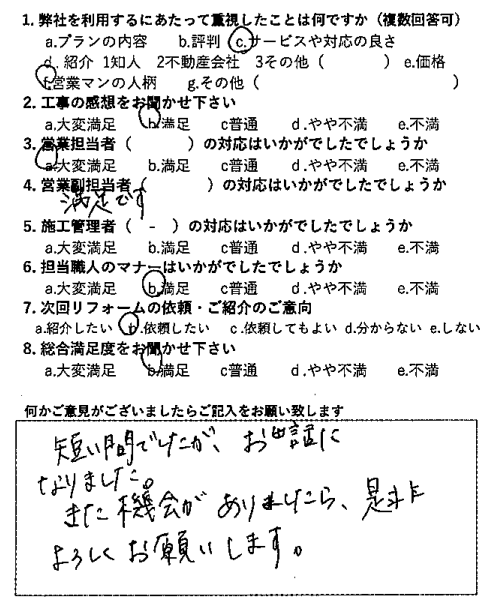 1. 弊社を利用するにあたって重視したことは何ですか（複数回答可）
a.プランの内容 b.評判 c.サービスや対応の良さ
d. 紹介 1知人 2不動産会社 3その他（ ）e.価格
f.営業マンの人柄 g.その他（ ）
2. 工事の感想をお聞かせ下さい
a.大変満足 b.満足 c普通 d.やや不満 e.不満
3. 営業担当者（ ）の対応はいかがでしたでしょうか
a.大変満足 b.満足 c普通 d.やや不満 e.不満
4. 営業副担当者（ ）の対応はいかがでしたでしょうか
満足です
5. 施工管理者（ - ）の対応はいかがでしたでしょうか
a.大変満足 b.満足 c普通 d.やや不満 e.不満
6. 担当職人のマナーはいかがでしたでしょうか
a.大変満足 b.満足 c普通 d.やや不満 e.不満
7. 次回リフォームの依頼・ご紹介のご意向
a.紹介したい b.依頼したい c.依頼してもよい d.分からない e.しない
8. 総合満足度をお聞かせ下さい
a.大変満足 b.満足 c普通 d.やや不満 e.不満
何かご意見がございましたらご記入をお願い致します
短い間でしたが、お世話に
なりました。
また機会がありましたら、是非
よろしくお願いします。